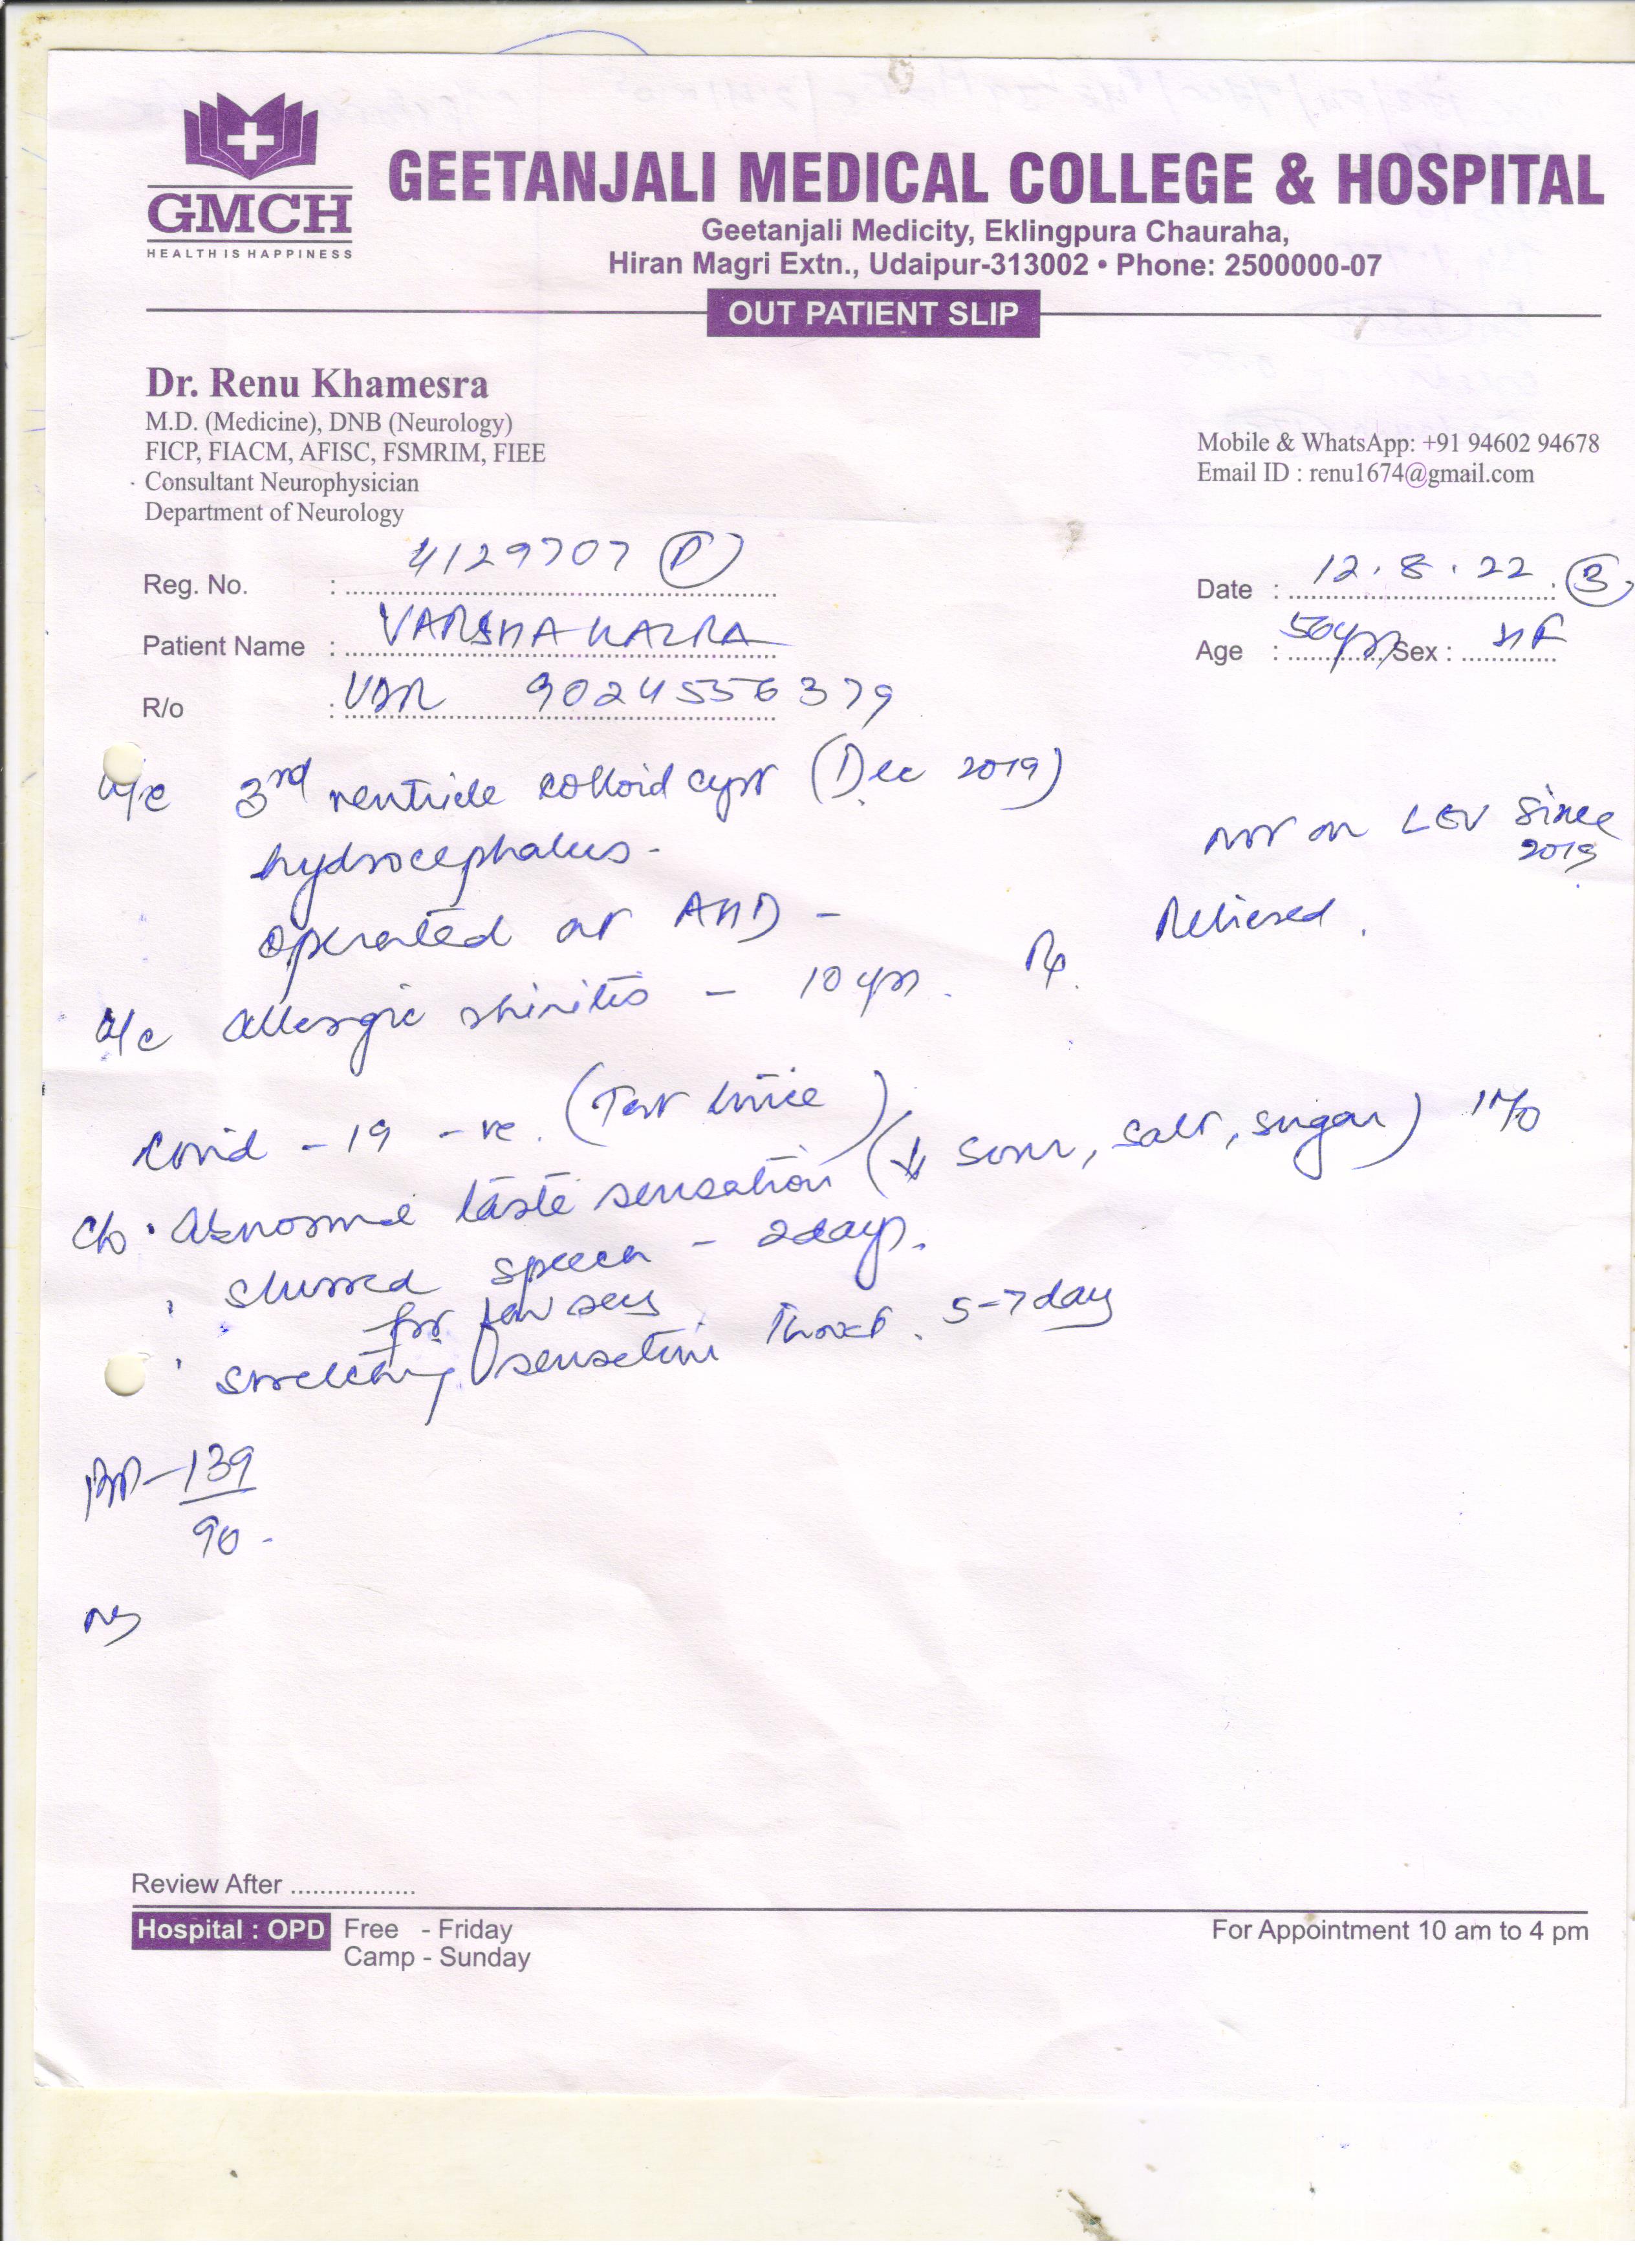 GMCH
HEALTH IS HAPPINESS
GEETANJALI MEDICAL COLLEGE & HOSPITAL
Geetanjali Medicity, Eklingpura Chauraha,
Hiran Magri Extn., Udaipur-313002 • Phone: 2500000-07
OUT PATIENT SLIP
Dr. Renu Khamesra
M.D. (Medicine), DNB (Neurology)
FICP, FIACM, AFISC, FSMRIM, FIEE
Consultant Neurophysician
Department of Neurology
Mobile & WhatsApp: +91 94602 94678
Email ID : renu1674@gmail.com
Reg. No. : 4129707 (P)
Date : 12.8.22 (3)
Patient Name : VARSHA KALRA
Age : 50yrs Sex : F
R/o : UDR 90245556379
3rd ventricle colloid cyst (Dec 2019)
hydrocephalus.
not on LEV since 2019
operated at AHD -
Relieved.
H/c Allergic rhinitis - 10 yrs. Rx.
Covid -19 -ve. (Test twice)
C/o • Abnormal taste sensation (↓ sour, salt, sugar) 1 M/o
• slurred speech - 2 days.
for few secs
• stretching sensation throat. 5-7 day
BP - 139/90 -
Review After .................
Hospital : OPD Free - Friday
Camp - Sunday
For Appointment 10 am to 4 pm